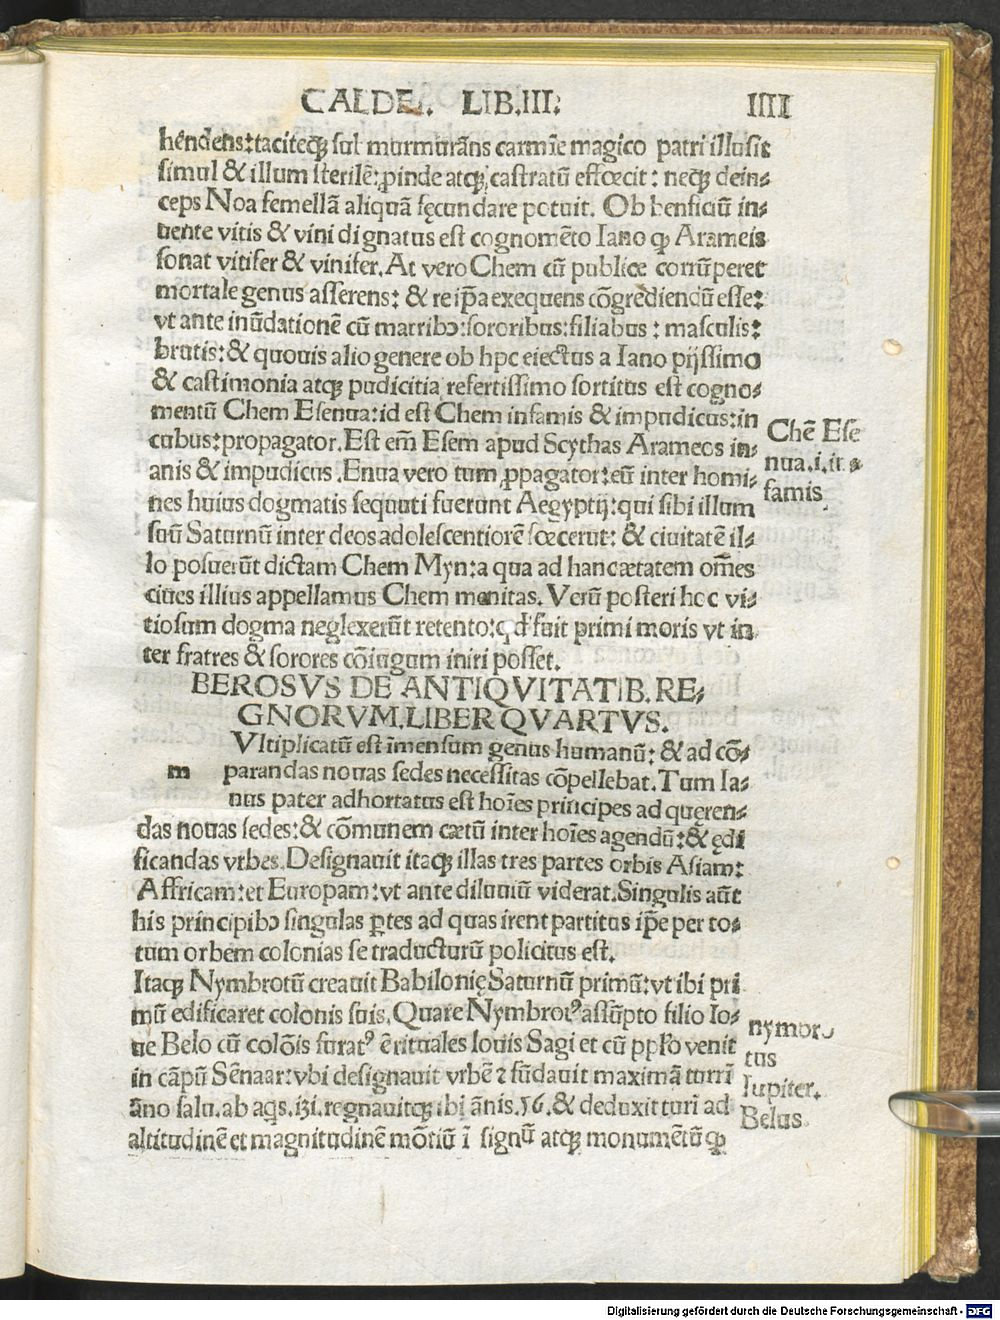 CALDE. LIB.III. IIII
hēndens:taciteqꝫ sub murmurāns carmīe magico patri illusit
simul & illum sterilē:ꝓinde atqꝫ castratū effœcit: neqꝫ dein-
ceps Noa femellā aliquā fęcundare potuit. Ob benficiū in-
uente vitis & vini dignatus est cognomēto Iano ꝙ Arameis
sonat vitifer & vinifer. At vero Chem cū publice corrūperet
mortale genus asserens: & re ip̄a exequens cōgrediendū esse:
vt ante inūdationē cū matribꝰ:sororibus:filiabus: masculis:
brutis:& quouis alio genere ob hoc eiectus a Iano pijssimo
& castimonia atqꝫ pudicitia refertissimo sortitus est cogno-
mentū Chem Esenua:id est Chem infamis & impudicus:in
cubus:propagator.Est em̄ Esem apud Scythas Arameos in-
anis & impudicus.Enua vero tum ꝓpagator:eū inter homi-
nes huius dogmatis sequuti fuerunt Aegyptij:qui sibi illum
suū Saturnū inter deos adolescentiorē fœcerūt: & ciuitatē il-
lo posuerūt dictam Chem Myn:a qua ad hanc ætatem om̄es
ciues illius appellamus Chem menitas. Verū posteri hoc vi-
tiosum dogma neglexerūt retento:qd' fuit primi moris vt in
ter fratres & sorores cōiugum iniri posset.
Chē Ese
nua.i.in-
famis
BEROSVS DE ANTIQVITATIB.RE-
GNORVM.LIBER QVARTVS.
m Vltiplicatū est imensum genus humanū: & ad cō-
parandas nouas sedes necessitas cōpellebat. Tum Ia-
nus pater adhortatus est hoīes principes ad quęren-
das nouas sedes:& cōmunem cætū inter hoīes agendū:& ędi
ficandas vrbes.Designauit itaqꝫ illas tres partes orbis Asiam:
Affricam:et Europam:vt ante diluuiū viderat.Singulis aūt
his principibꝰ singulas ꝑtes ad quas irent partitus ip̄e per to-
tum orbem colonias se traducturū policitus est.
Itaqꝫ Nymbrotū creauit Babilonię Saturnū primū:vt ibi pri
mū edificaret colonis suis. Quare Nymbrotꝰ assūpto filio Io-
ue Belo cū colōis furatꝰ ē rituales Iouis Sagi et cū pplo venit
in cāpū Sēnaar:vbi designauit vrbē ⁊ fūdauit maximā turrī
āno salu. ab aqs. 131. regnauitqꝫ ibi ānis.56.& deduxit turī ad
altitudinē et magnitudinē mōtiū ī signū atqꝫ monumētū ꝙ
nymbro
tus
Iupiter.
Belus.
Digitalisierung gefördert durch die Deutsche Forschungsgemeinschaft - DFG